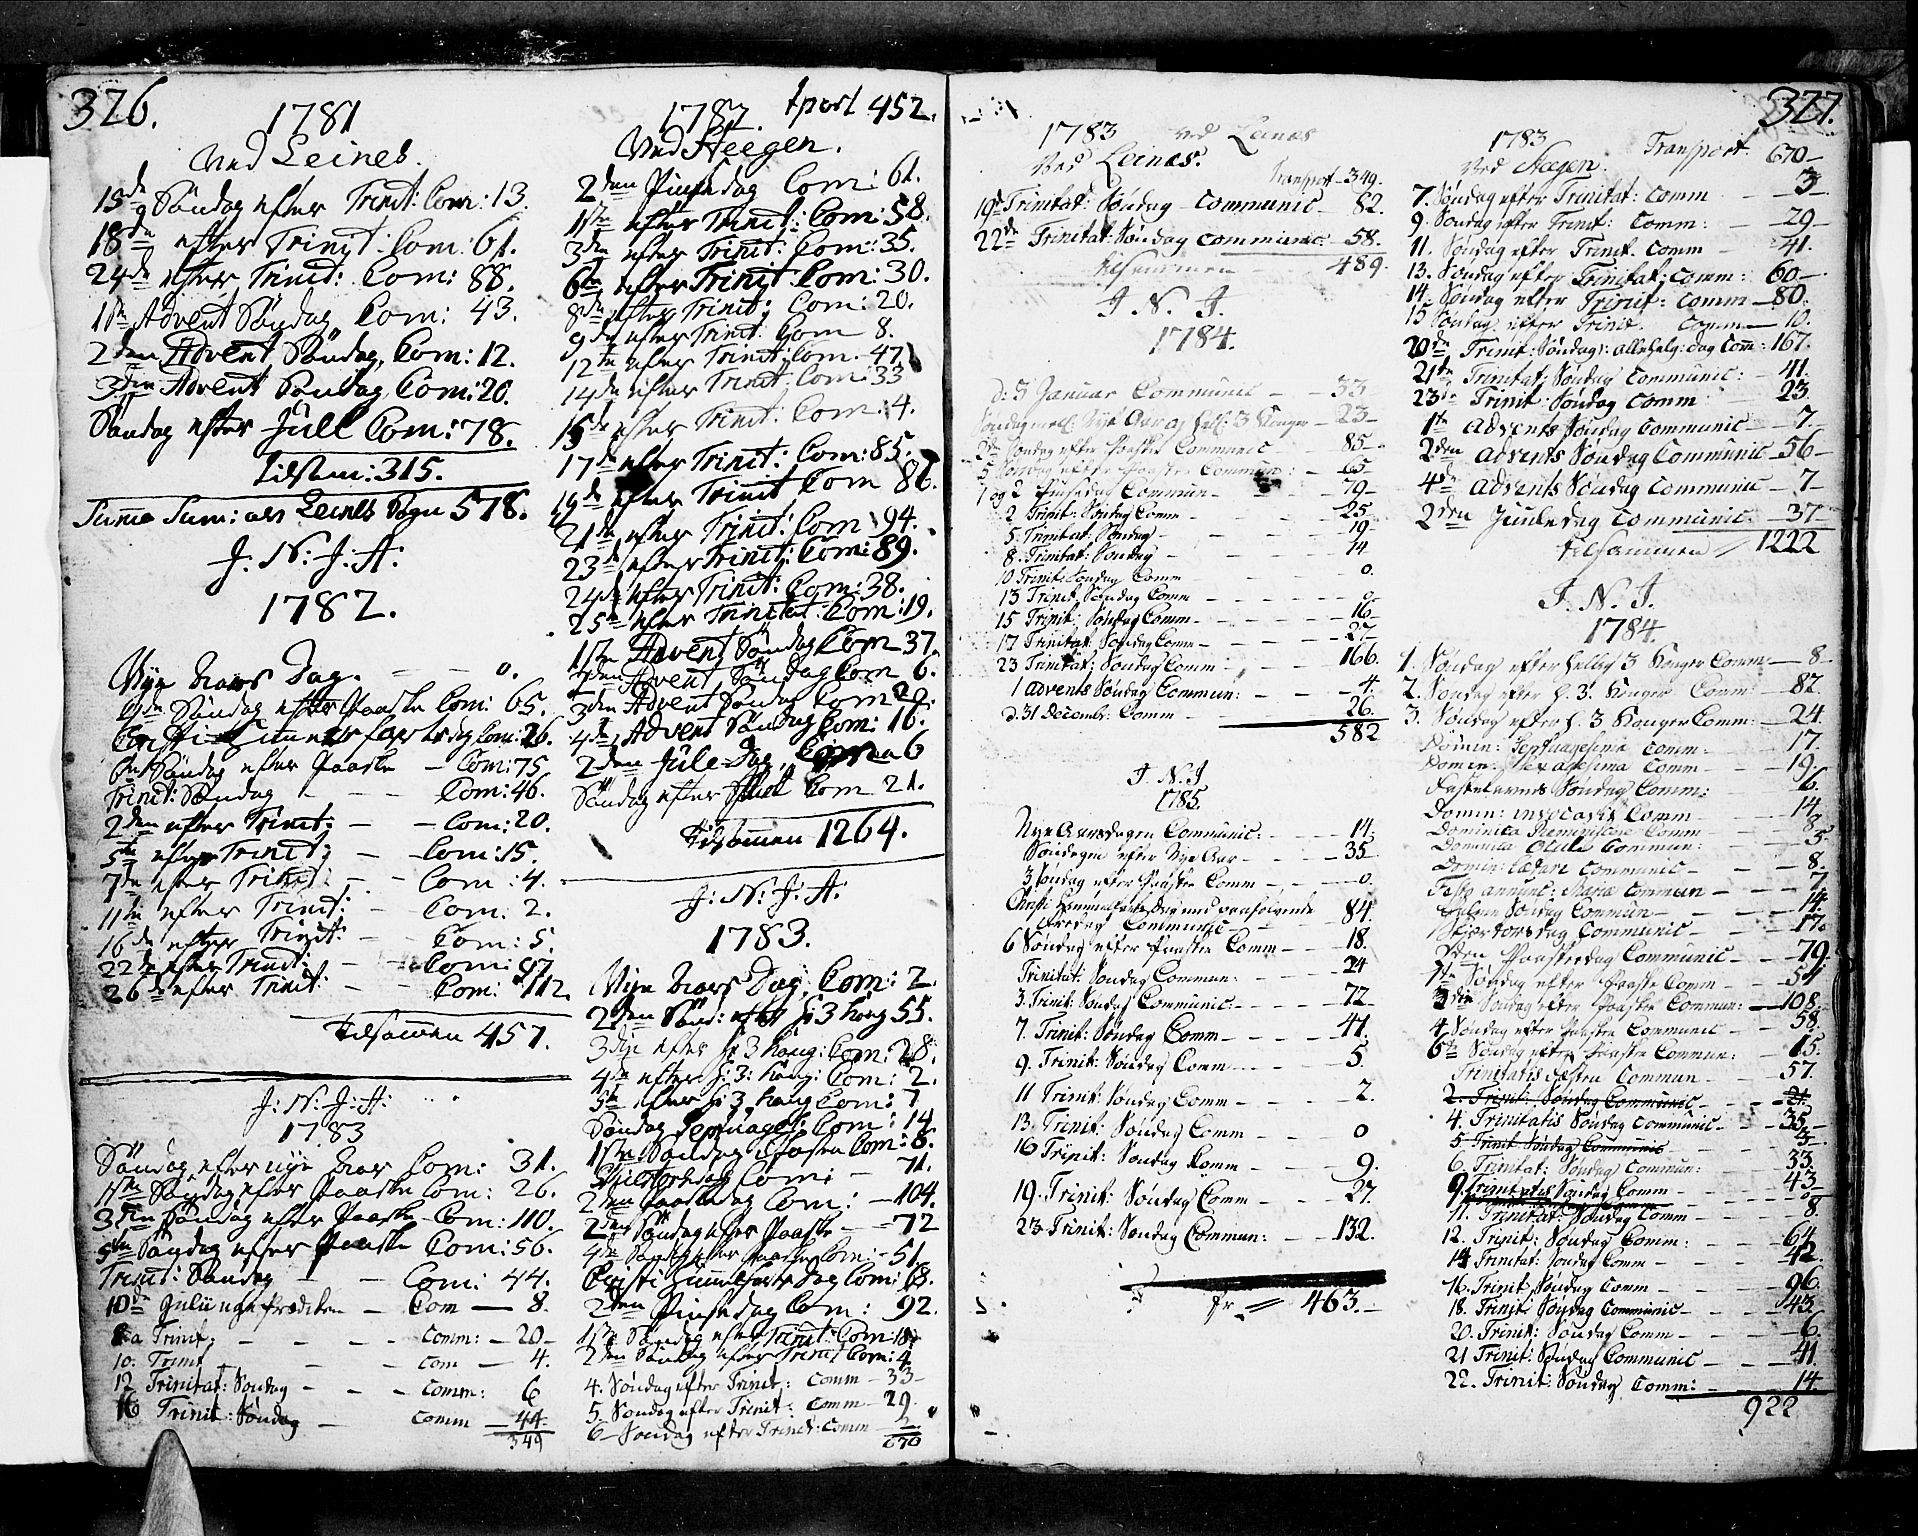 326.
1781
Ved Leines.
15de Søndag efter Trinit: Com: 13.
18de efter Trinit: Com: 61.
24de efter Trinit: Com: 88.
1ste Advent Søndag Com: 43.
2den Advent Søndag, Com: 12.
3die Advent Søndag Com: 20.
Søndag efter Jull Com: 78.
tilsam: 315.
Summa Sum: av Leines Sogn 578.
J. N: J. A:
1782.
Nye Aars Dag. - - 0.
4de Søndag efter Paaske Com: 65.
Christi Himmelsfarts dag Com: 26.
6te Søndag efter Paaske - Com: 75
Trinit: Søndag - - - Com: 46.
2den efter Trinit: - - Com: 20.
5te efter Trinit; - - Com: 15.
7de efter Trinit: - - Com: 4.
11te efter Trinit: - - Com: 2.
16de efter Trinit: - - Com: 5.
22de efter Trinit: - - Com: 87
26de efter Trinit: - - Com: 112.
tilsammen 457.
J: N: J: A:
1783
Søndag efter nye Aar Com: 31.
1ste Søndag efter Paaske Com: 26.
3die Søndag efter Paaske - Com: 110.
5te Søndag efter Paaske Com: 56.
Trinit: Søndag - - Com: 44.
10de Julii nye Prædiken - Com - 8.
8a Trinit: - - - - Comm: - 20-
10. Trinit - - - Com - 4.
12 Trinitat: Søndag - - - Comm: 6
16 Trinit: Søndag - Comm - 44-
349
1782. tport 452.
Ved Heegen.
2den Pintsedag Com: 61.
1ste efter Trinit: Com: 58.
3den efter Trinit: Com: 35.
6te efter Trinit: Com: 30.
8de efter Trinit: Com: 20.
9de efter Trinit: Com 8.
12te efter Trinit: Com. 47
14de efter Trinit: Com: 33
15de efter Trinit: Com: 4.
17de efter Trinit: Com: 85.
19de efter Trinit Com 86.
21de efter Trinit: Com 94.
23de efter Trinit: Com: 89.
24de efter Trinit: Com: 38.
25de efter Trinitat: Com: 19.
1ste Advent Søndag Com 37.
2den Advent Søndag Com 6.
3den Advent Søndag Com 20.
4de Advent Søndag Com: 16.
2den Jule Dag, 6
Søndag efter Com 21.
tilsamen 1264.
J: N: J: A:
1783.
Nye Aars Dag, Com: 2.
2den Sønd: efter H: 3 Kong 55.
3die efter H: 3 Kong: Com: 28.
4de efter H: 3: Kong: Com: 2.
5te efter H: 3 Kong Com: 7
Søndag Septuages: Com: 14
1ste Søndag i Fasten Com: 8.
Skiertorsdag Com: - 71.
2den Paaskedag Com: - 104.
2den Søndag efter Paaske - - 72
4de Søndag efter Paaske Com: - 51.
Christi Himmelfarts Dag Com: 68.
2den Pintsedag Com: 92.
1ste Søndag efter Trinit: Com: 18
2den Søndag efter Trinit Com: 4
4. Søndag efter Trinit: Comm - 33-
5. Søndag efter Trinit: Comm - 29.
6- Søndag efter Trinit: Comm 2
670
1783 Ved Leines
Ved Leinæs.
Transport - 349.
19de Trinitat: Søndag - Communic - 82.
22de Trinitat: Søndag Communic: - 58.
tilsammen 489.
J. N. J.
1784.
d: 3 Januar Communic - - 33
Søndag mell: Nye Aar og hell: 3 Konger - 23-
3de Søndag efter Paaske Communic - 85-
5 Søndag efter Paaske Commun: - 65
1 og 2 Pinsedag Commun- - - 79-
2 Trinit: Søndag Comm - - 25
5. Trinitat: Søndag - - - - 19
8. Trinitat: Søndag - - - - 14
10 Trinit: Søndag Comm - - - 0.
13 Trinit: Søndag Comm - - - - 0
15 Trinit: Søndag Comm - - - - 16-
17 Trinitat: Søndag Comm - - - - 27-
23 Trinitat: Søndag Comm - - - 166.
1 Advents Søndag Commun: - - - 4.
d: 31 Decemb: Comm - 26.
582
J. N. J
1785.
Nye Aarsdagen Communic: - - 14.
Søndagen efter Nye Aar - - - 35
3 Søndag efter Paaske Comm - - 0
Christi Himmelfartsdag med paafølgende
Communic - - 84.
6 Søndag efter Paaske Comm - - 18.
Trinitat: Søndag Commun: - - 24
3. Trinit: Søndag Communic: - - 72
7. Trinit: Søndag Comm - - - 41.
9. Trinit: Søndag Comm - - - 5.
11 Trinit: Søndag Comm - - - 2.
13. Trinit: Søndag Comm - - - 0
16 Trinit: Søndag Komm - - - 9.
19. Trinit: Søndag Comm - - 27.
23 Trinit: Søndag Commun: - - 132.
463.-
327.
1783 Transport. 670-
Ved Hægen.
7. Søndag efter Trinitat: Comm - 3
9. Søndag efter Trinit: Comm: - 29-
11. Søndag efter Trinit. Comm 41.
13. Søndag efter Trinitat: Comm: 60-
14. Søndag efter Trinit: Comm - 80.
15 Søndag efter Trinit. Comm - 10.
20de Trinit: Søndag: Allehelg: dag Com: 167.
21de Trinitat: Søndag Communic: - 41.
23de Trinit: Søndag Comm 23
1ste Advents Søndag Communic - 7.
2den Advents Søndag Communic - 56-
4de Advents Søndag Communic - 7-
2den Juule dag Communic: - 37-
tilsammen 1222
J. N. J.
1784.
1. Søndag efter hellig 3 Konger Comm - 8-
2. Søndag efter H. 3. Konger Comm: - 82.
3. Søndag efter H. 3 Konger Comm: - 24.
Domin: Septuagesima Comm: - - 17.
Domin: Sexagesima Comm - - 19.
Fastelavns Søndag Comm: - - 6.
Domin: invocavit Comm - 14
Dominica Reminiscere Comm 8
Dominica Oculi Commun: - 5
Domin: Lætare Communic - - 8-
Festo annunc: Mariæ Commun - - - 7
Palme Søndag Commun - - - 14
Skiertorsdag Communic - - 17.
2den Paaskedag Communic - - 79.
1ste Søndag efter Paaske Comm - - 54
3die Søndag efter Paaske Commun: - 108.
4 Søndag efter Paaske Communic - - 58.
6te Søndag efter Paaske Commun: - 15.
Trinitatis Festen Commun - - 57.
2. Trinit: Søndag Communic - - - 21.
4. Trinitatis Søndag Communic - - 35-
5 Trinit Søndag Communic - - 3
6. Trinitat: Søndag Commun: - - 33
9. Trinitatis Søndag Comm - - 43-
11. Trinitat: Søndag Comm - - - 8.
12. Trinit: Søndag Comm: - - - 64
14 Trinitat: Søndag Comm - - - 42
16. Trinit: Søndag Comm - - - 96.
18. Trinit: Søndag Communic - - 43
20. Trinit: Søndag Comm - - - 6.
21 Trinit: Søndag Communic - - - 41
22. Trinit: Søndag Comm: - - 14
922